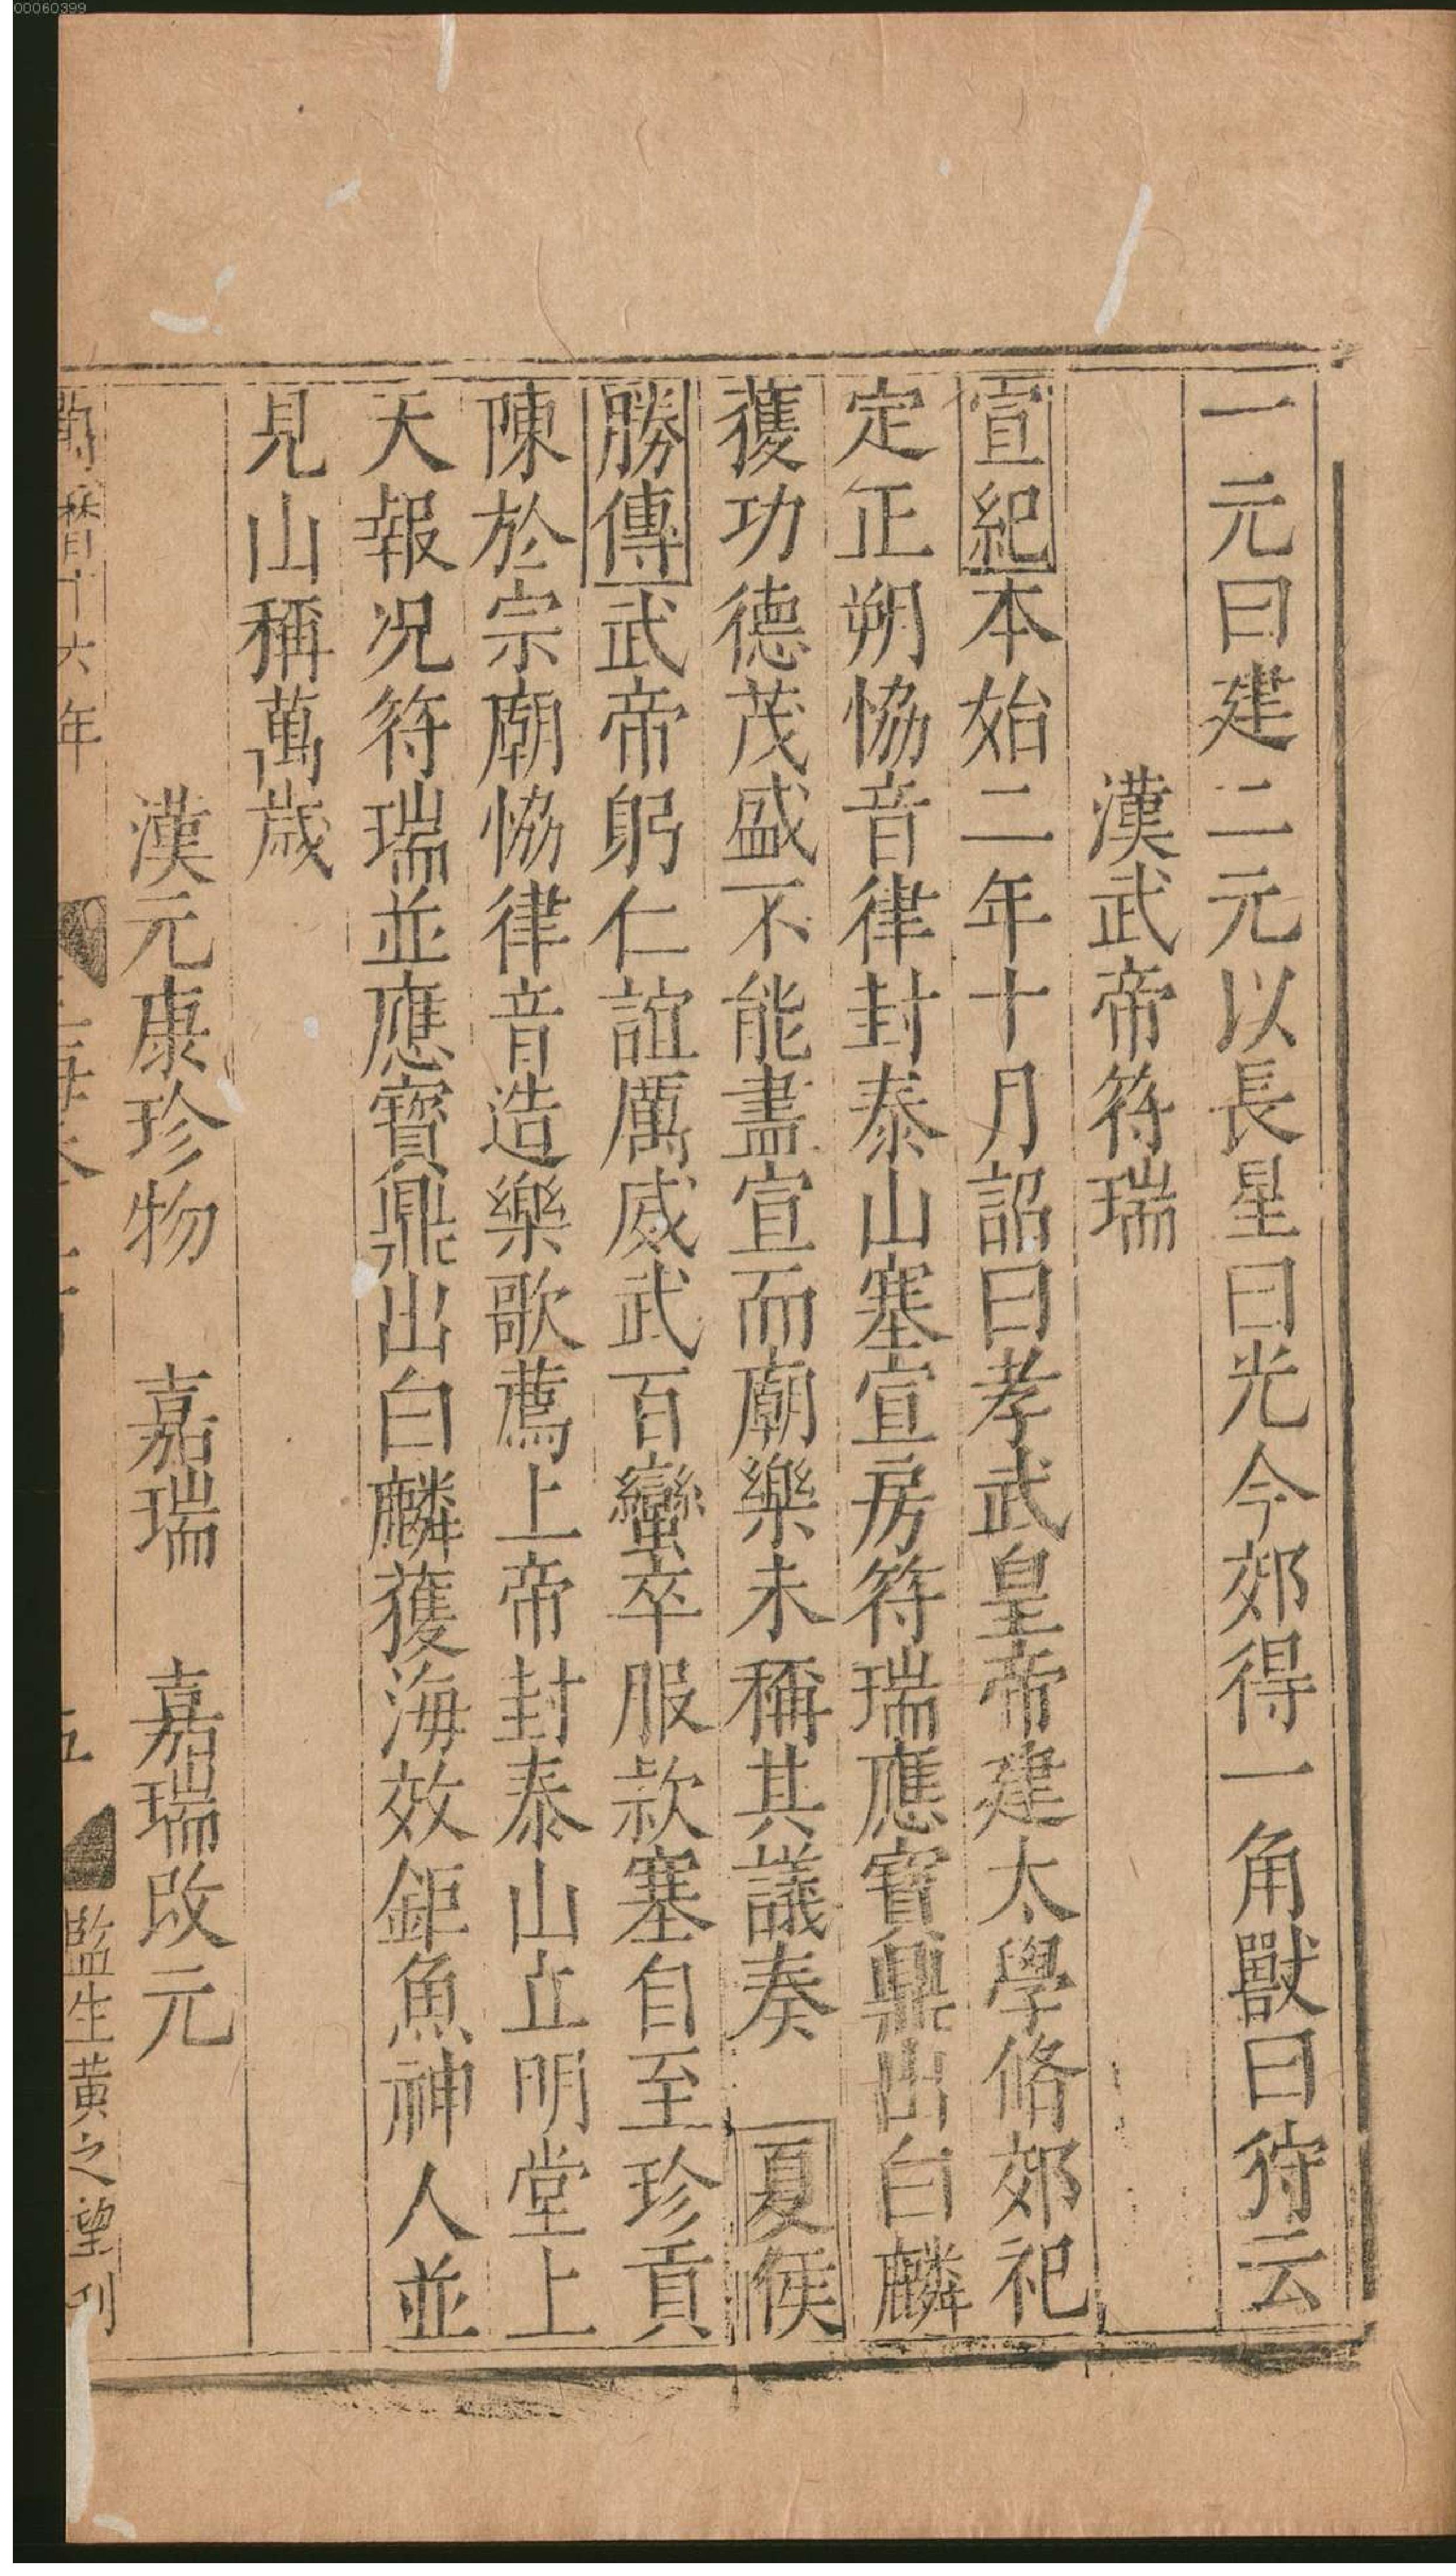 00060399
一元曰建二元以長星曰光今郊得一角獸曰狩云
漢武帝符瑞
宣紀本始二年十月詔曰孝武皇帝建太學脩郊祀
定正朔恊音律封泰山塞宣房符瑞應寶鼎出白麟
獲功德茂盛不能盡宣而廟樂未稱其議奏 夏侯
勝傳武帝躬仁誼厲威武百蠻卒服款塞自至珍貢
陳於宗廟恊律音造樂歌薦上帝封泰山立明堂上
天報况符瑞並應寶鼎出白麟獲海效鉅魚神人並
見山稱萬歲
漢元康珍物 嘉瑞 嘉瑞改元
十六年
五
監生黄之望刊